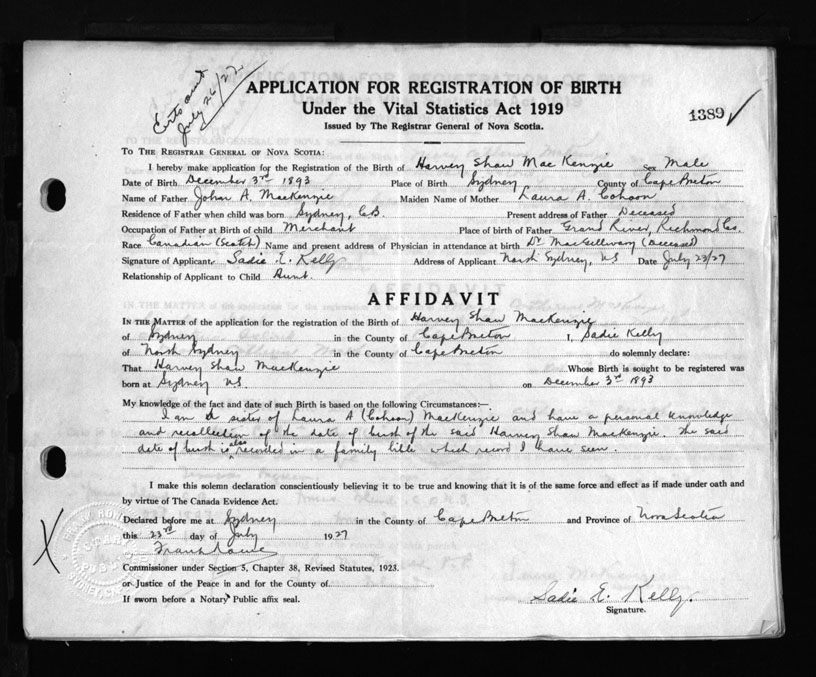 Certs out
July 26/27
APPLICATION FOR REGISTRATION OF BIRTH
Under the Vital Statistics Act 1919
Issued by The Registrar General of Nova Scotia.
1389
TO THE REGISTRAR GENERAL OF NOVA SCOTIA:
I hereby make application for the Registration of the Birth of Harvey Shaw MacKenzie Sex Male
Date of Birth December 3rd 1893 Place of Birth Sydney County of Cape Breton
Name of Father John A. MacKenzie Maiden Name of Mother Laura A. Cohoon
Residence of Father when child was born Sydney, C.B. Present address of Father Deceased
Occupation of Father at Birth of child Merchant Place of birth of Father Grand River, Richmond Co.
Race Canadian (Scotch) Name and present address of Physician in attendance at birth Dr MacGillivary (Deceased)
Signature of Applicant Sadie E. Kelly Address of Applicant North Sydney, NS Date July 23/27
Relationship of Applicant to Child Aunt.
AFFIDAVIT
IN THE MATTER of the application for the registration of the Birth of Harvey Shaw MacKenzie
of Sydney in the County of Cape Breton I, Sadie Kelly
of North Sydney in the County of Cape Breton do solemnly declare:
That Harvey Shaw MacKenzie Whose Birth is sought to be registered was
born at Sydney NS on December 3rd 1893
My knowledge of the fact and date of such Birth is based on the following Circumstances:—
I am a sister of Laura A (Cohoon) MacKenzie and have a personal knowledge
and recollection of the date of birth of the said Harvey Shaw MacKenzie. The said
date of birth is also recorded in a family bible which record I have seen.
I make this solemn declaration conscientiously believing it to be true and knowing that it is of the same force and effect as if made under oath and
by virtue of The Canada Evidence Act.
Declared before me at Sydney in the County of Cape Breton and Province of Nova Scotia
this 23rd day of July 1927
Frank Rowe
Commissioner under Section 5, Chapter 38, Revised Statutes, 1923.
or Justice of the Peace in and for the County of
If sworn before a Notary Public affix seal.
Sadie E. Kelly.
Signature.